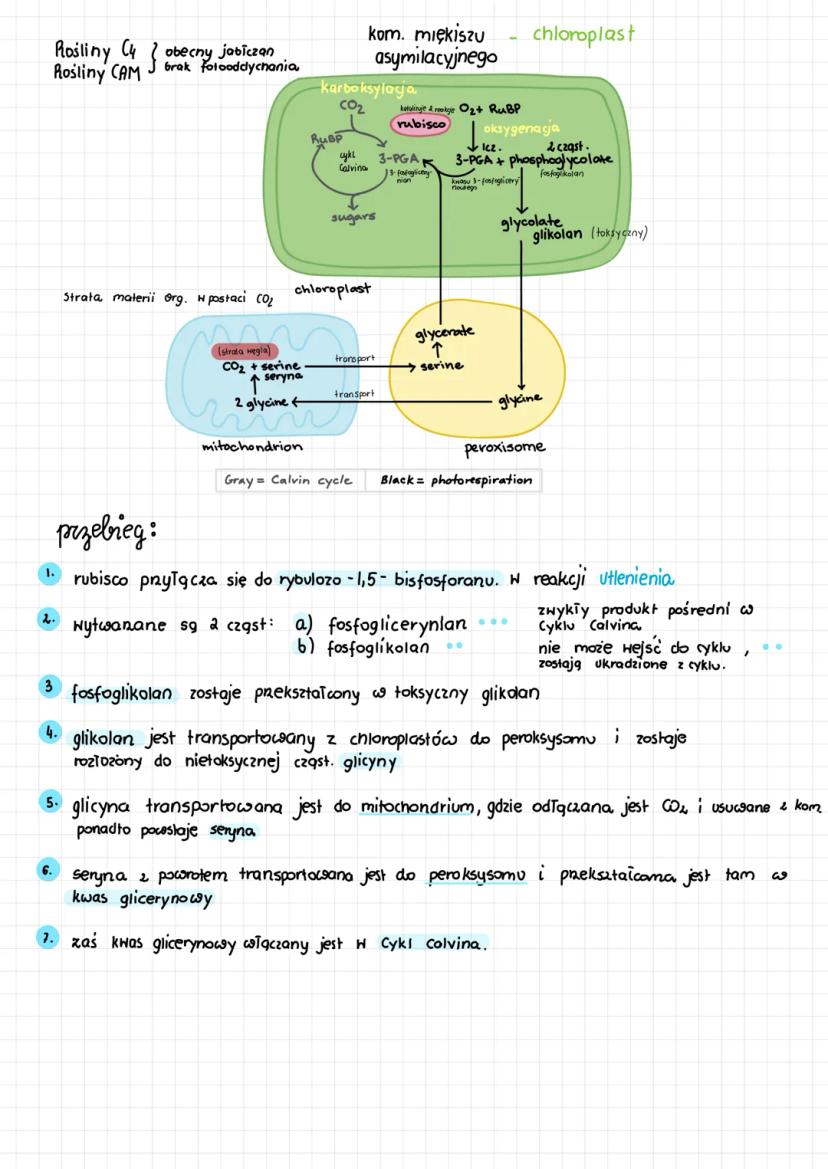 Rośliny C4 } obecny jabłczan
Rośliny CAM } brak fotooddychania
kom. miękiszu - chloroplast
asymilacyjnego
karboksylacja
CO2
katalizuje 2 reakcje
O2 + RuBP
rubisco
oksygenacja
RuBP
cykl
Calvina
3-PGA
3-fosfoglicery-
nian
1cz.
2 cząst.
3-PGA + phosphoglycolate
kwasu 3-fosfoglicery
nowego
fosfoglikolan
sugars
glycolate
glikolan (toksyczny)
chloroplast
Strata materii org. w postaci CO2
(strata węgla)
CO2 + serine
seryna
2 glycine
transport
transport
glycerate
serine
glycine
mitochondrion
peroxisome
Gray = Calvin cycle Black = photorespiration
przebieg:
1. rubisco przyłącza się do rybulozo -1,5- bisfosforanu. W reakcji utlenienia
2. wytwarzane są 2 cząst: a) fosfoglicerynian ••• zwykły produkt pośredni w
cyklu Calvina
b) fosfoglikolan •• nie może wejść do cyklu , ••
zostają ukradzione z cyklu.
3 fosfoglikolan zostaje przekształcony w toksyczny glikolan
4. glikolan jest transportowany z chloroplastów do peroksysomu i zostaje
rozłożony do nietoksycznej cząst. glicyny
5. glicyna transportowana jest do mitochondrium, gdzie odłączana jest CO2 i usuwane z kom
ponadto powstaje seryna
6. seryna z powrotem transportowana jest do peroksysomu i przekształcana jest tam w
kwas glicerynowy
7. zaś kwas glicerynowy włączany jest w Cykl Calvina.